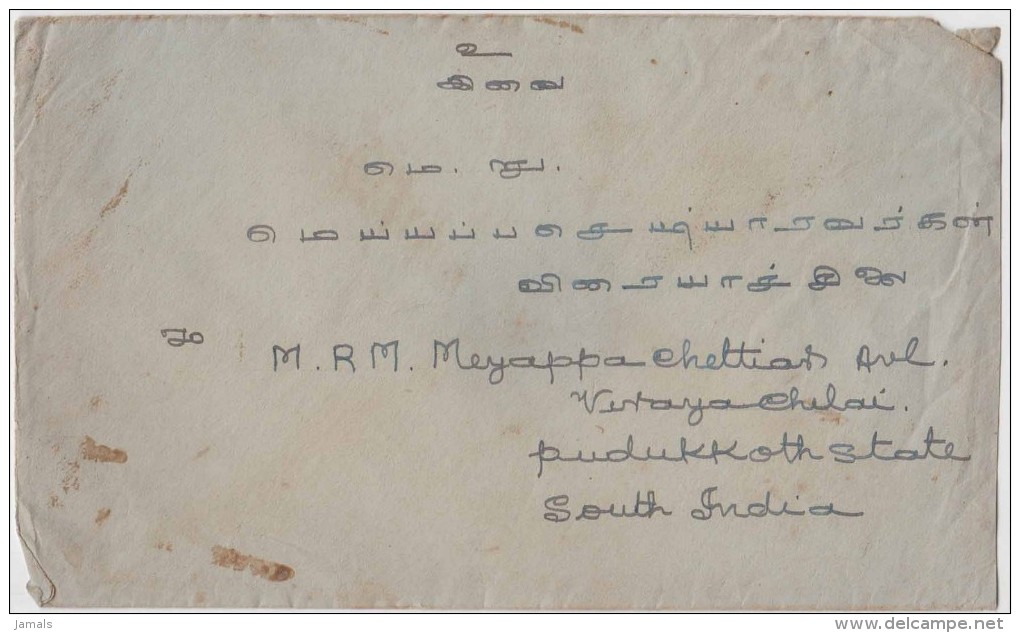 உ
இவை
மெ. ரு.
மெய்யப்ப செட்டியாரவர்கள்
விரையாச்சிலை
M. R M. Meyappa Chettiar Avl.
Viraya Chilai.
Pudukkoth State
South India
Jamals
www.delcampe.net